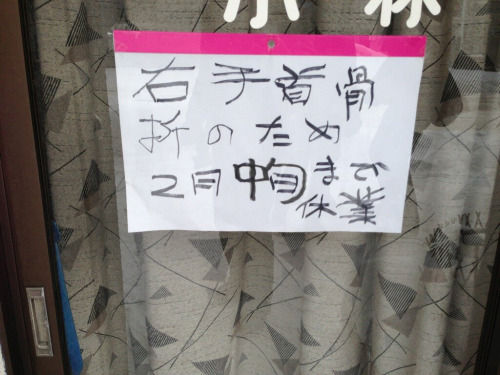 右手首骨
折のため
2月中旬まで
休業